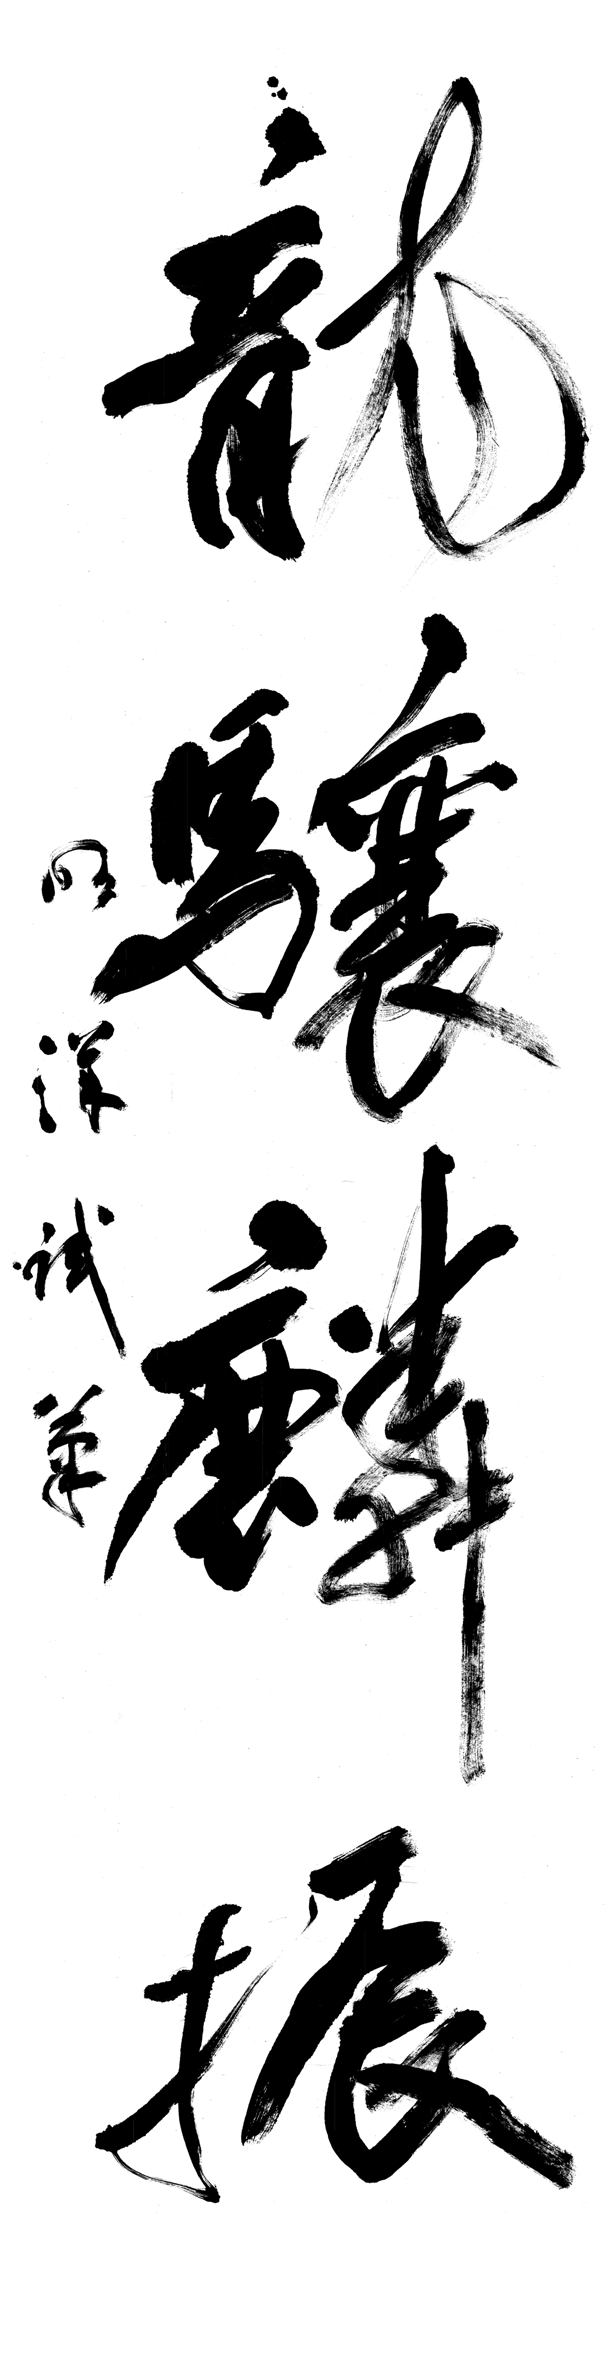 龍驤麟振
明洋試筆